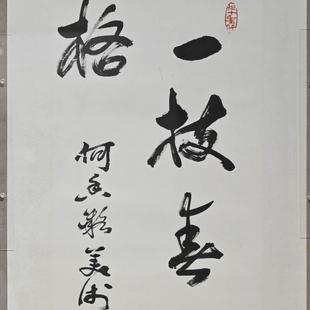 一枝春
格
何香凝美术